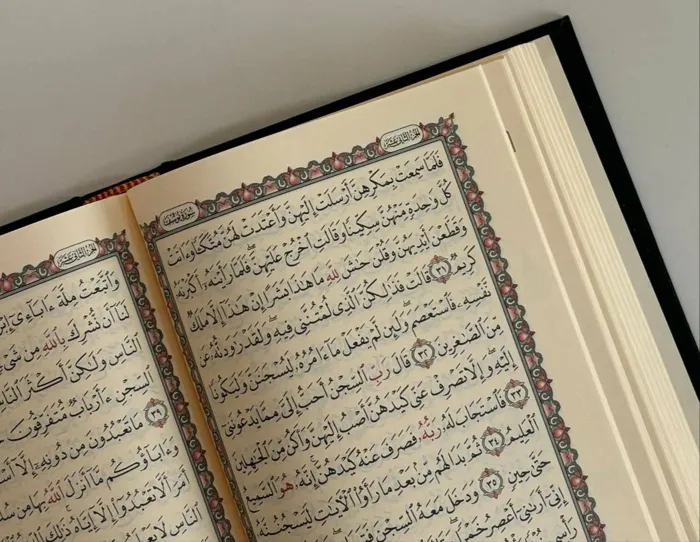 الجزء الثاني عشر
سورة يوسف
فَلَمَّا سَمِعَتْ بِمَكْرِهِنَّ أَرْسَلَتْ إِلَيْهِنَّ وَأَعْتَدَتْ لَهُنَّ مُتَّكَـًٔا وَءَاتَتْ
كُلَّ وَٰحِدَةٍ مِّنْهُنَّ سِكِّينًا وَقَالَتِ ٱخْرُجْ عَلَيْهِنَّ ۖ فَلَمَّا رَأَيْنَهُۥٓ أَكْبَرْنَهُۥ
وَقَطَّعْنَ أَيْدِيَهُنَّ وَقُلْنَ حَٰشَ لِلَّهِ مَا هَٰذَا بَشَرًا إِنْ هَٰذَآ إِلَّا مَلَكٌ
كَرِيمٌ ٣١ قَالَتْ فَذَٰلِكُنَّ ٱلَّذِى لُمْتُنَّنِى فِيهِ ۖ وَلَقَدْ رَٰوَدتُّهُۥ عَن
نَّفْسِهِۦ فَٱسْتَعْصَمَ ۖ وَلَئِن لَّمْ يَفْعَلْ مَآ ءَامُرُهُۥ لَيُسْجَنَنَّ وَلَيَكُونًا
مِّنَ ٱلصَّٰغِرِينَ ٣٢ قَالَ رَبِّ ٱلسِّجْنُ أَحَبُّ إِلَىَّ مِمَّا يَدْعُونَنِىٓ
إِلَيْهِ ۖ وَإِلَّا تَصْرِفْ عَنِّى كَيْدَهُنَّ أَصْبُ إِلَيْهِنَّ وَأَكُن مِّنَ ٱلْجَٰهِلِينَ
٣٣ فَٱسْتَجَابَ لَهُۥ رَبُّهُۥ فَصَرَفَ عَنْهُ كَيْدَهُنَّ ۚ إِنَّهُۥ هُوَ ٱلسَّمِيعُ
ٱلْعَلِيمُ ٣٤ ثُمَّ بَدَا لَهُم مِّنۢ بَعْدِ مَا رَأَوُا۟ ٱلْـَٔايَٰتِ لَيَسْجُنُنَّهُۥ
حَتَّىٰ حِينٍ ٣٥ وَدَخَلَ مَعَهُ ٱلسِّجْنَ
إِنِّىٓ أَرَىٰنِىٓ أَعْصِرُ خَمْرًا
رَأْسِى
الجزء الثاني عشر
وَٱتَّبَعْتُ مِلَّةَ ءَابَآءِىٓ
لَنَآ أَن نُّشْرِكَ بِٱللَّهِ مِن
ٱلنَّاسِ وَلَٰكِنَّ أَكْثَرَ
ٱلسِّجْنِ ءَأَرْبَابٌ مُّتَفَرِّقُونَ
٣٩ مَا تَعْبُدُونَ مِن دُونِهِۦٓ إِلَّآ
وَءَابَآؤُكُم مَّآ أَنزَلَ ٱللَّهُ بِهَا مِن
أَمَرَ أَلَّا تَعْبُدُوٓا۟ إِلَّآ إِيَّاهُ ۚ ذَٰلِكَ
ٱلنَّاسِ لَا